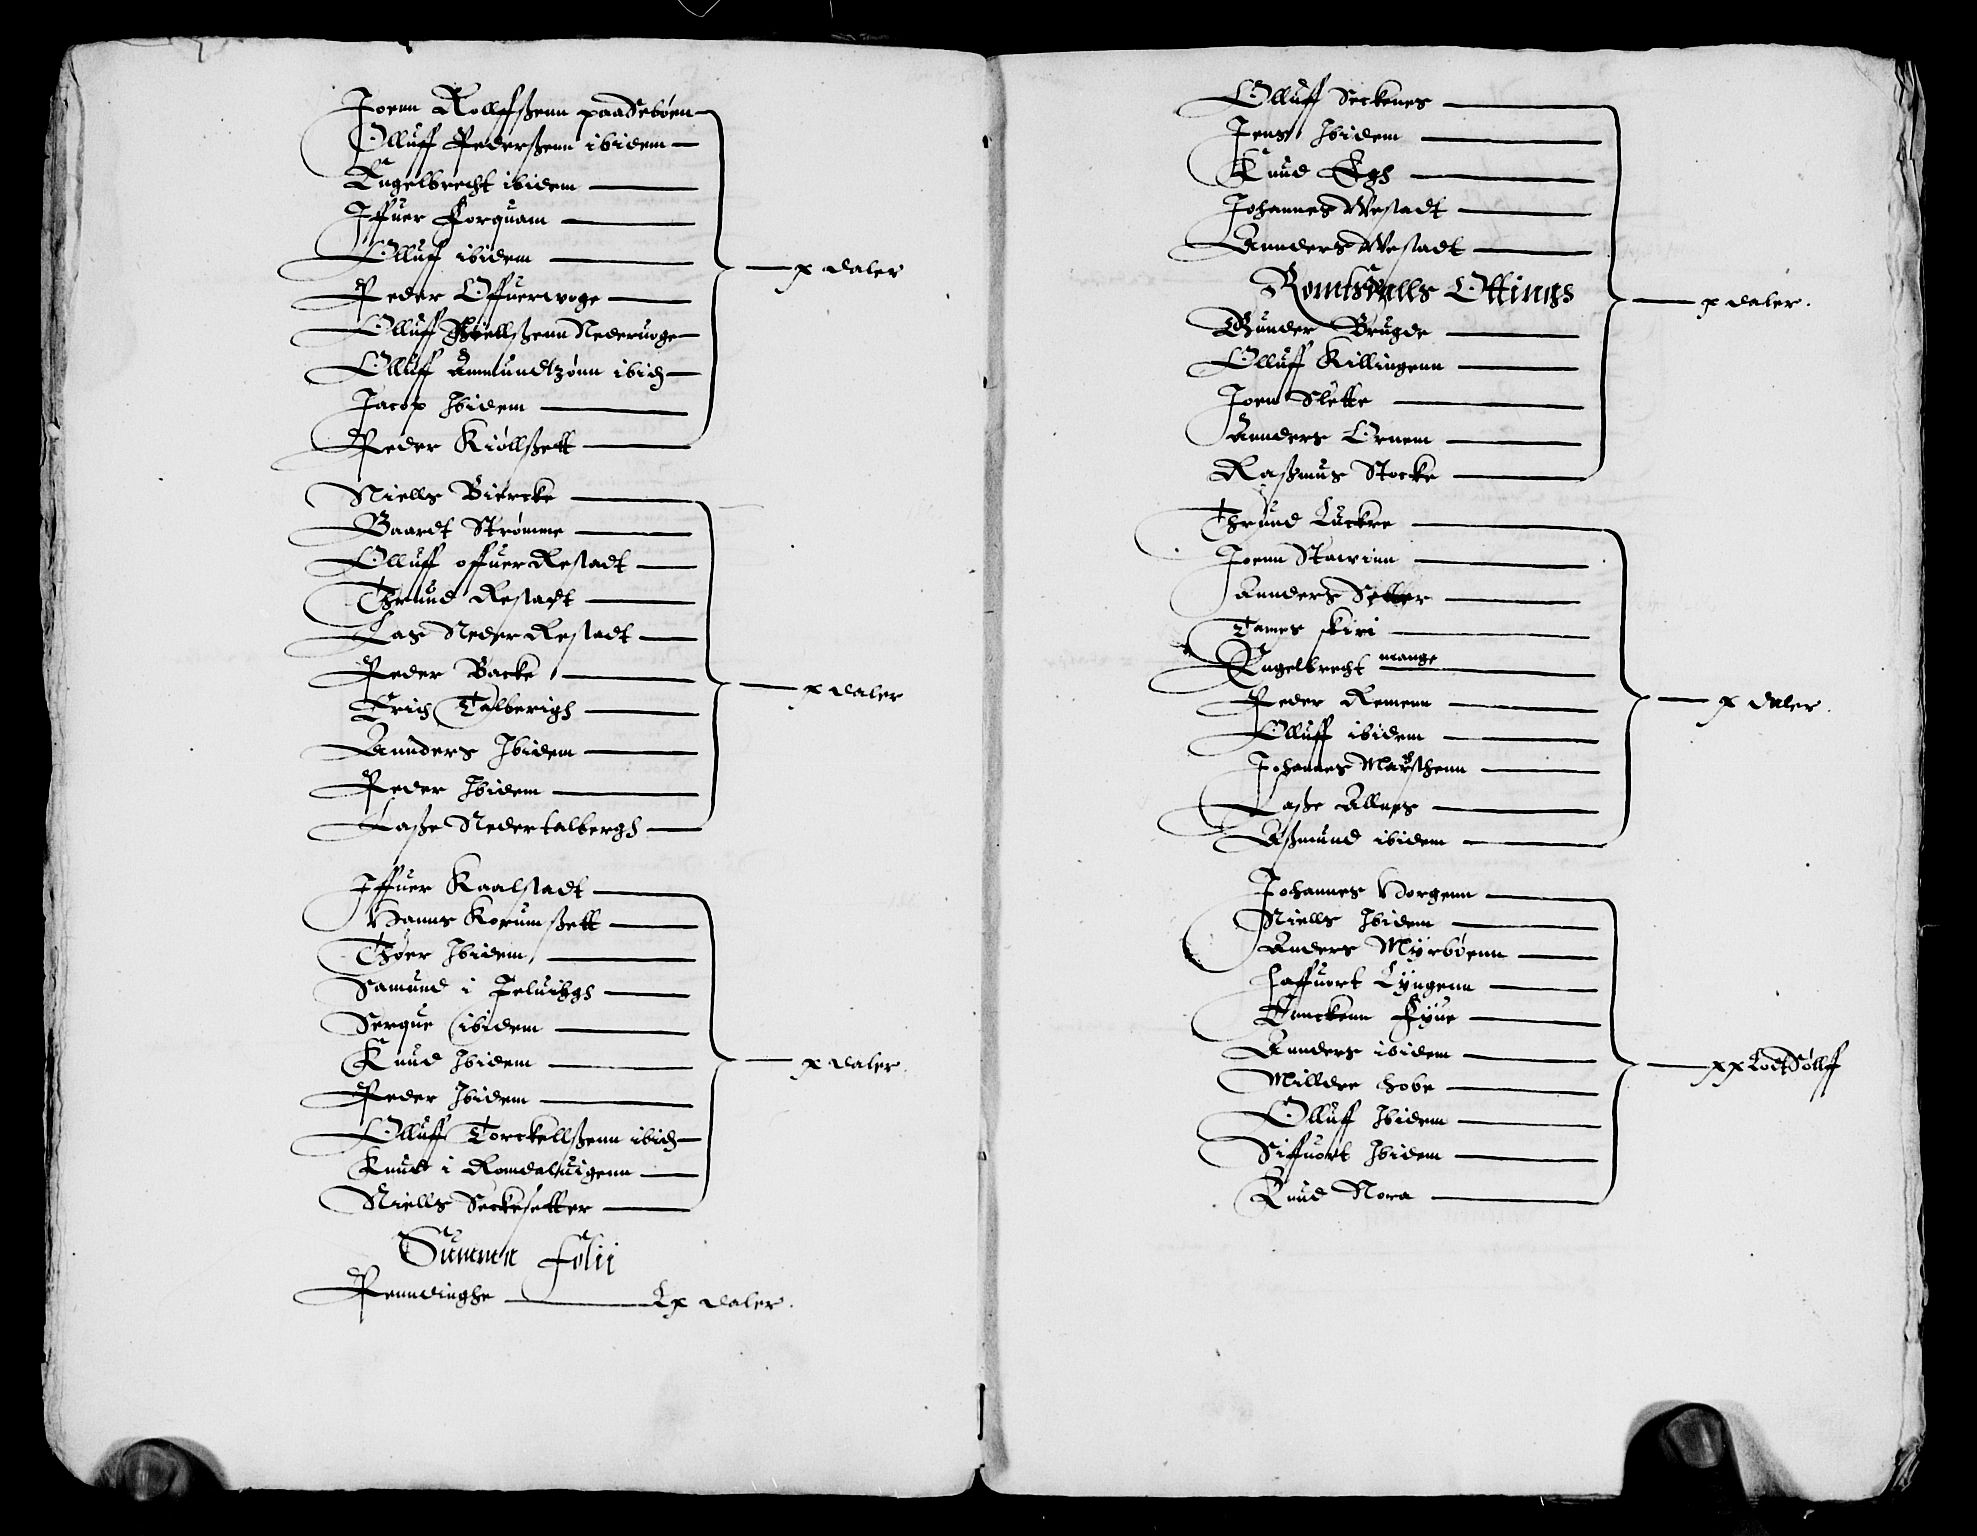 Joenn Rollffßenn paa Sebøen
Olluff Pederßenn ibidem
Engelbrecht ibidem
Iffuer Forquam
Olluf ibidem
Peder Offuerwoge
Olluff Kiellßenn Nederuoge
Olluff Ammundtzønn ibid
Jacop Ibidem
Peder Kiøllßett
x daler
Niells Biercke
Baardt Strømme
Olluff offuer Restadt
Thrund Restadt
Las Neder Restadt
Peder Backe
Erich Talberigh
Annders Ibidem
Peder Ibidem
Laße Nedertalbergh
x daler
Iffuer Kaalstadt
Hanns Korumßett
Thoer Ibidem
Samund i
Serque ibidem
Knud Ibidem
Peder Ibidem
Olluff Torckellßenn ibid
Knud i Romdaluigenn
Niells Seckesetter
x daler
Summa Folij
Penndinghe Lx daler.
Olluff Seckenes
Jens Ibidem
Knud Egh
Johannes Westadt
Annders Westadt
Romsdalls Ottings
Gunder Brugde
Olluff Killingenn
Joen Slette
Annders Ornem
Raßmus Stocke
x daler.
Thrund Luckre
Joenn Stawinn
Annders
Tames skiri
Engelbrecht mange
Peder Remenn
Olluff ibidem
Johannes Marsthenn
Laße Allnes
Aßmund ibidem
x daler.
Johannes Horgenn
Niells Ibidem
Anders Myrbøenn
Haffuort Lyngenn
Tunckenn Fyue
Annders ibidem
Milldre Hobe
Olluff Ibidem
Siffuort Ibidem
Knud Nora
xx Lodt Sølff